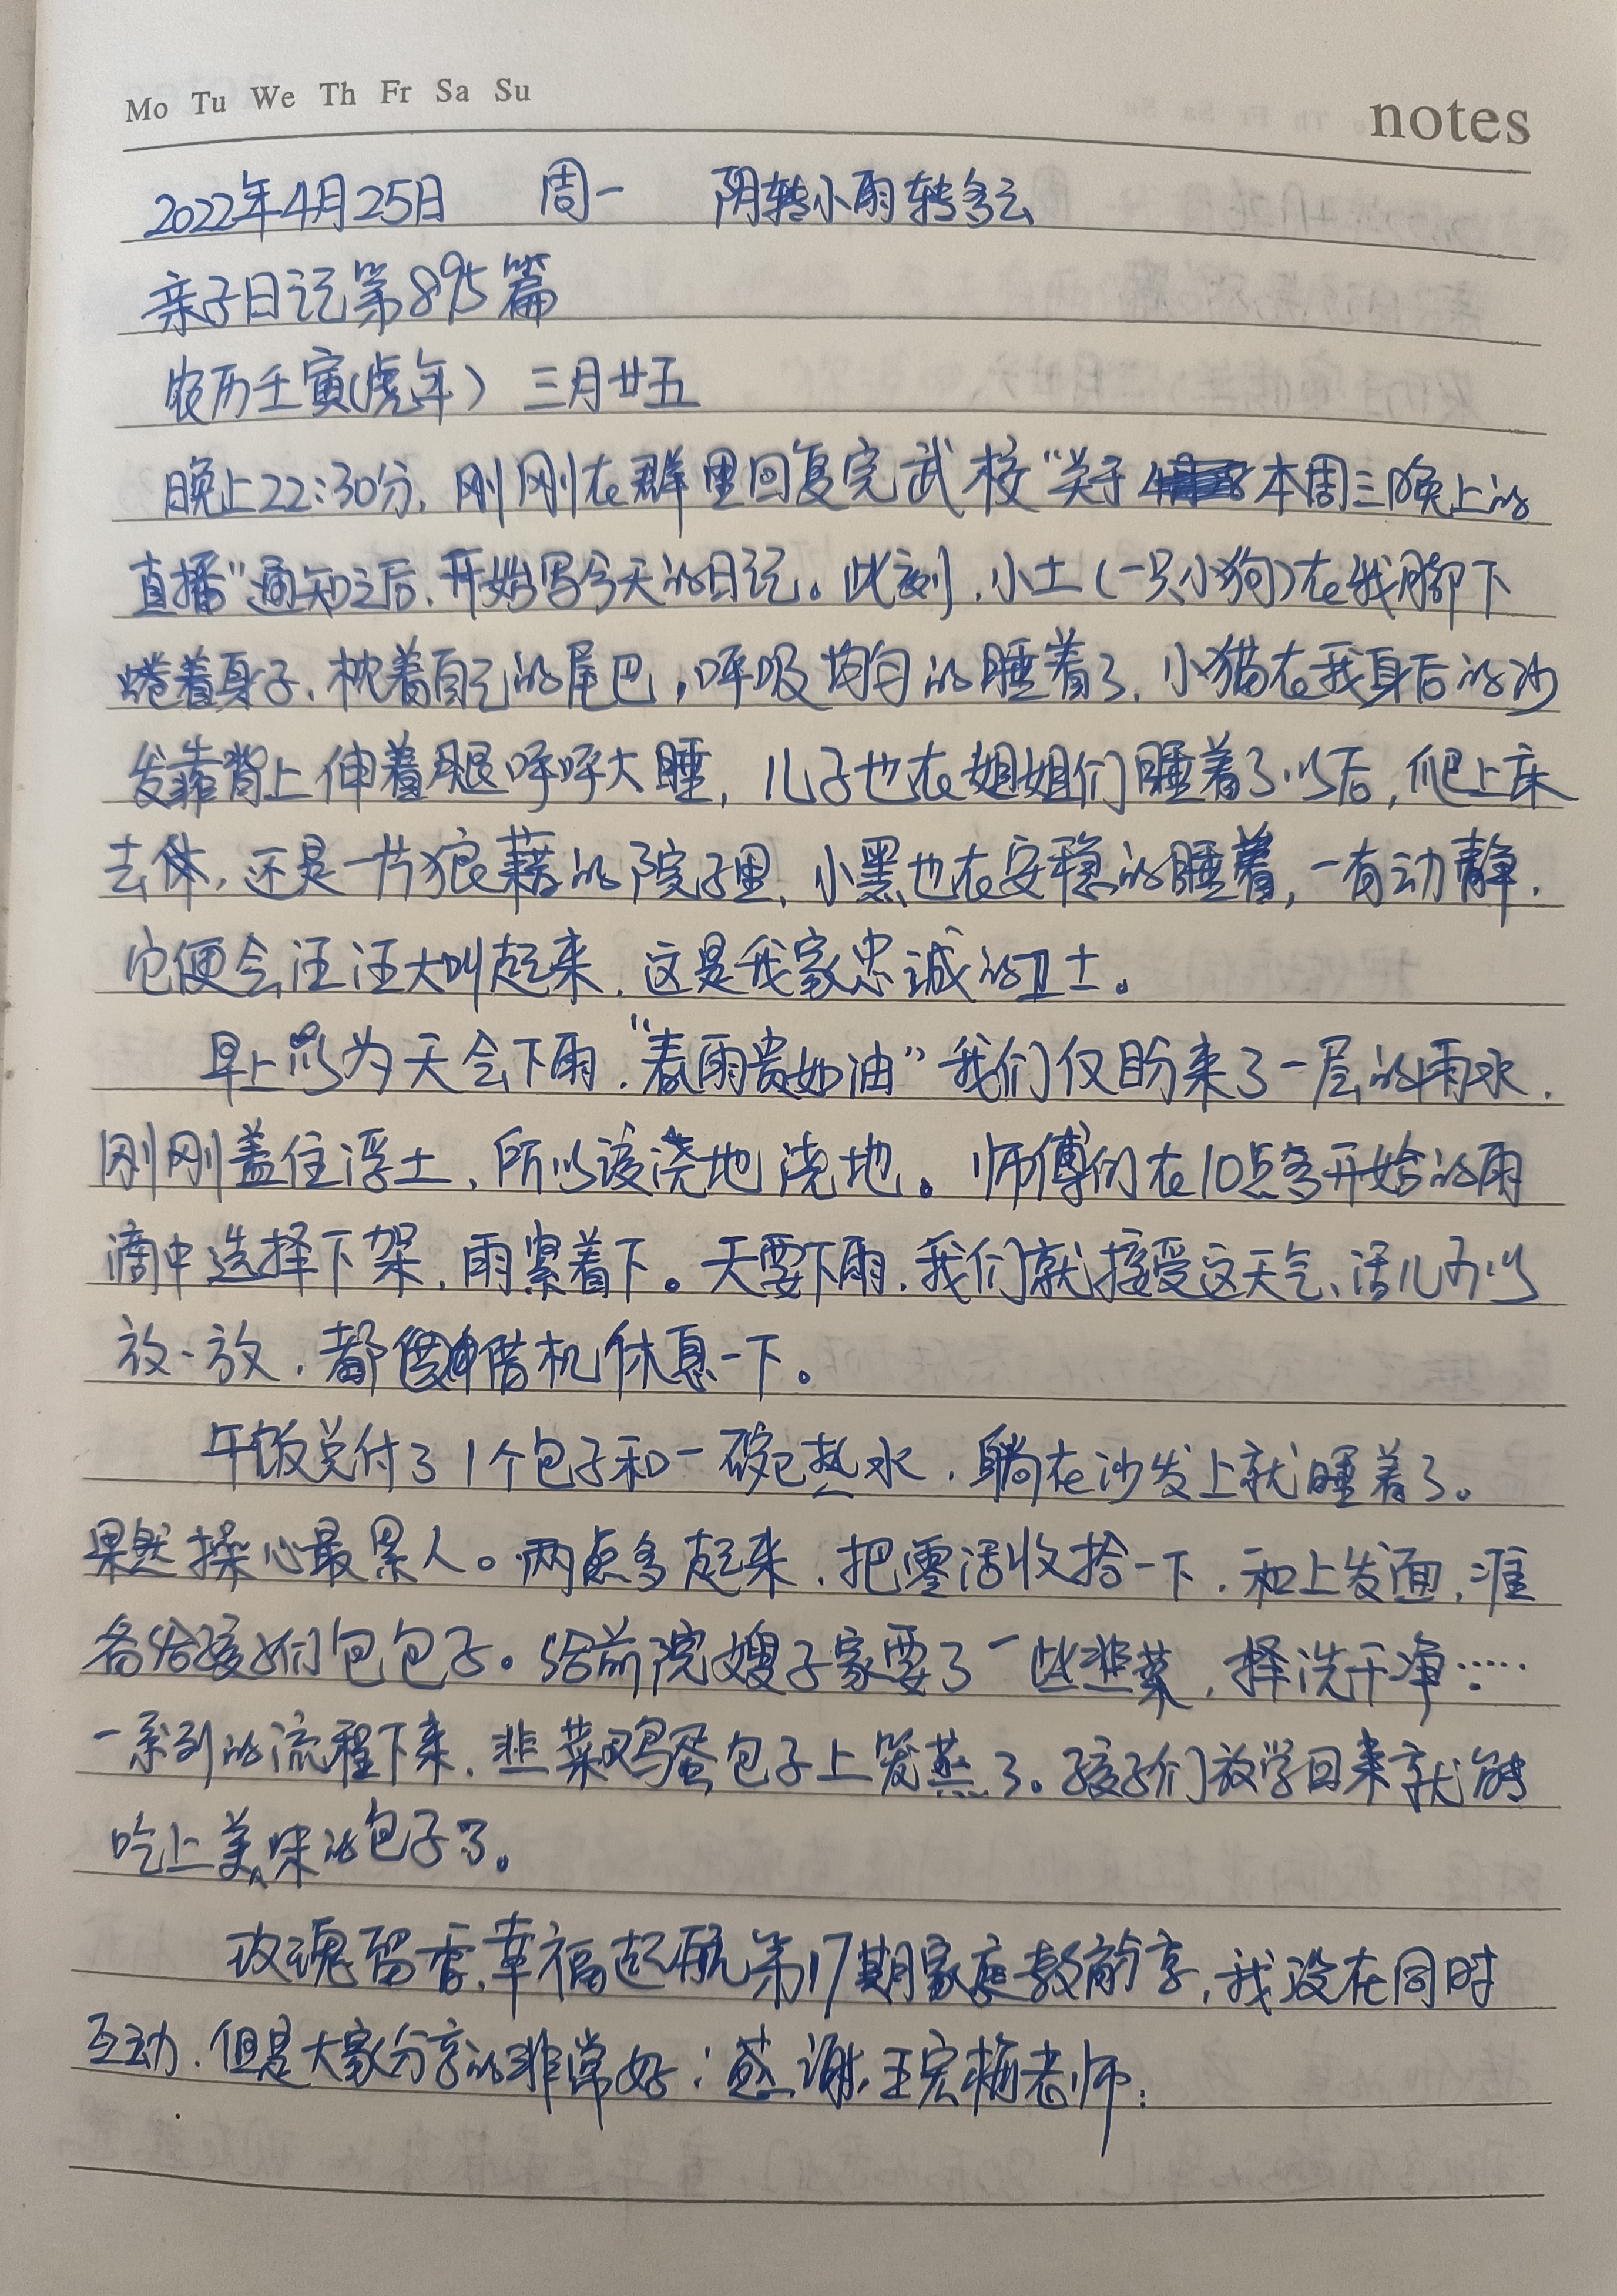 Mo Tu We Th Fr Sa Su
notes
2022年4月25日 周一 阴转小雨转多云
亲子日记第895篇
农历壬寅(虎年) 三月廿五
晚上22:30分,刚刚在群里回复完武校“关于本周三晚上的
直播”通知之后,开始写今天的日记。此刻,小土(一只小狗)在我脚下
蜷着身子、枕着自己的尾巴,呼吸均匀的睡着了,小猫在我身后的沙
发靠背上伸着腿呼呼大睡,儿子也在姐姐们睡着了以后,爬上床
去休,还是一片狼藉的院子里,小黑也在安稳的睡着,一有动静,
它便会汪汪大叫起来,这是我家忠诚的卫士。
早上以为天会下雨,“春雨贵如油”我们仅盼来了一层的雨水,
刚刚盖住浮土,所以该浇地浇地。师傅们在10点多开始的雨
滴中选择下架,雨紧着下。天要下雨,我们就接受这天气、活儿可以
放一放,都借机休息一下。
午饭兑付了1个包子和一碗热水,躺在沙发上就睡着了。
果然操心最累人。两点多起来,把零活收拾一下,和上发面,准
备给孩子们包包子。给前院嫂子家要了一些韭菜,择洗干净……
一系列的流程下来,韭菜鸡蛋包子上笼蒸了。孩子们放学回来就能
吃上美味的包子了。
玫瑰留香,幸福起航第17期家庭教育分享,我没在同时
互动,但是大家分享的非常好;感谢王宏梅老师;